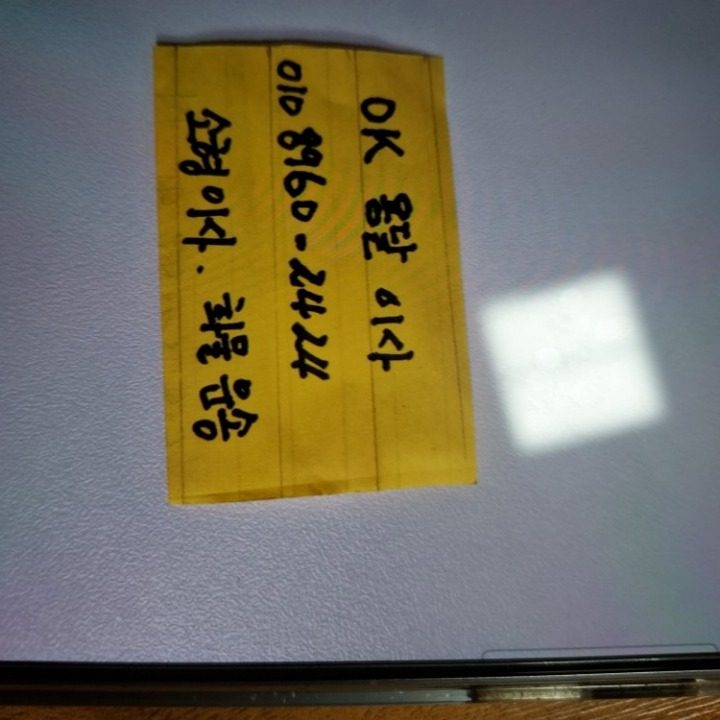 OK 용달 이사
010 8960-2424
소형이사. 화물 운송